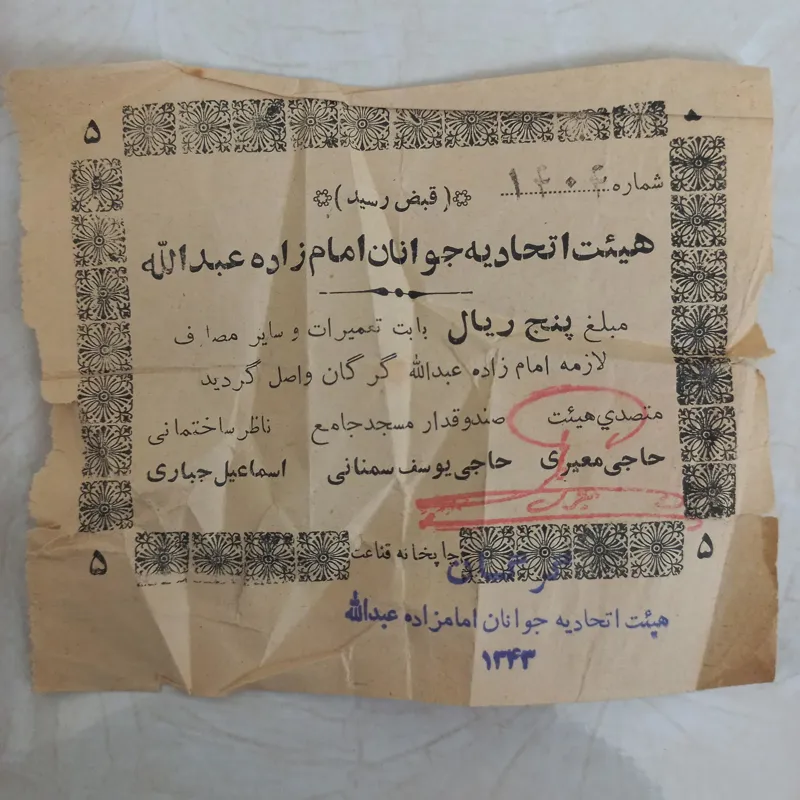 ۵
شماره ۱۴۰۴
( قبض رسید )
هیئت اتحادیه جوانان امام زاده عبدالله
مبلغ پنج ریال بابت تعمیرات و سایر مصارف
لازمه امام زاده عبدالله گرگان واصل گردید
متصدي هیئت صندوقدار مسجد جامع ناظر ساختمانی
حاجی معیری حاجی یوسف سمنانی اسماعیل جباری
۵ چاپخانه قناعت ۵
گرگان
هیئت اتحادیه جوانان امامزاده عبدالله
۱۳۴۳